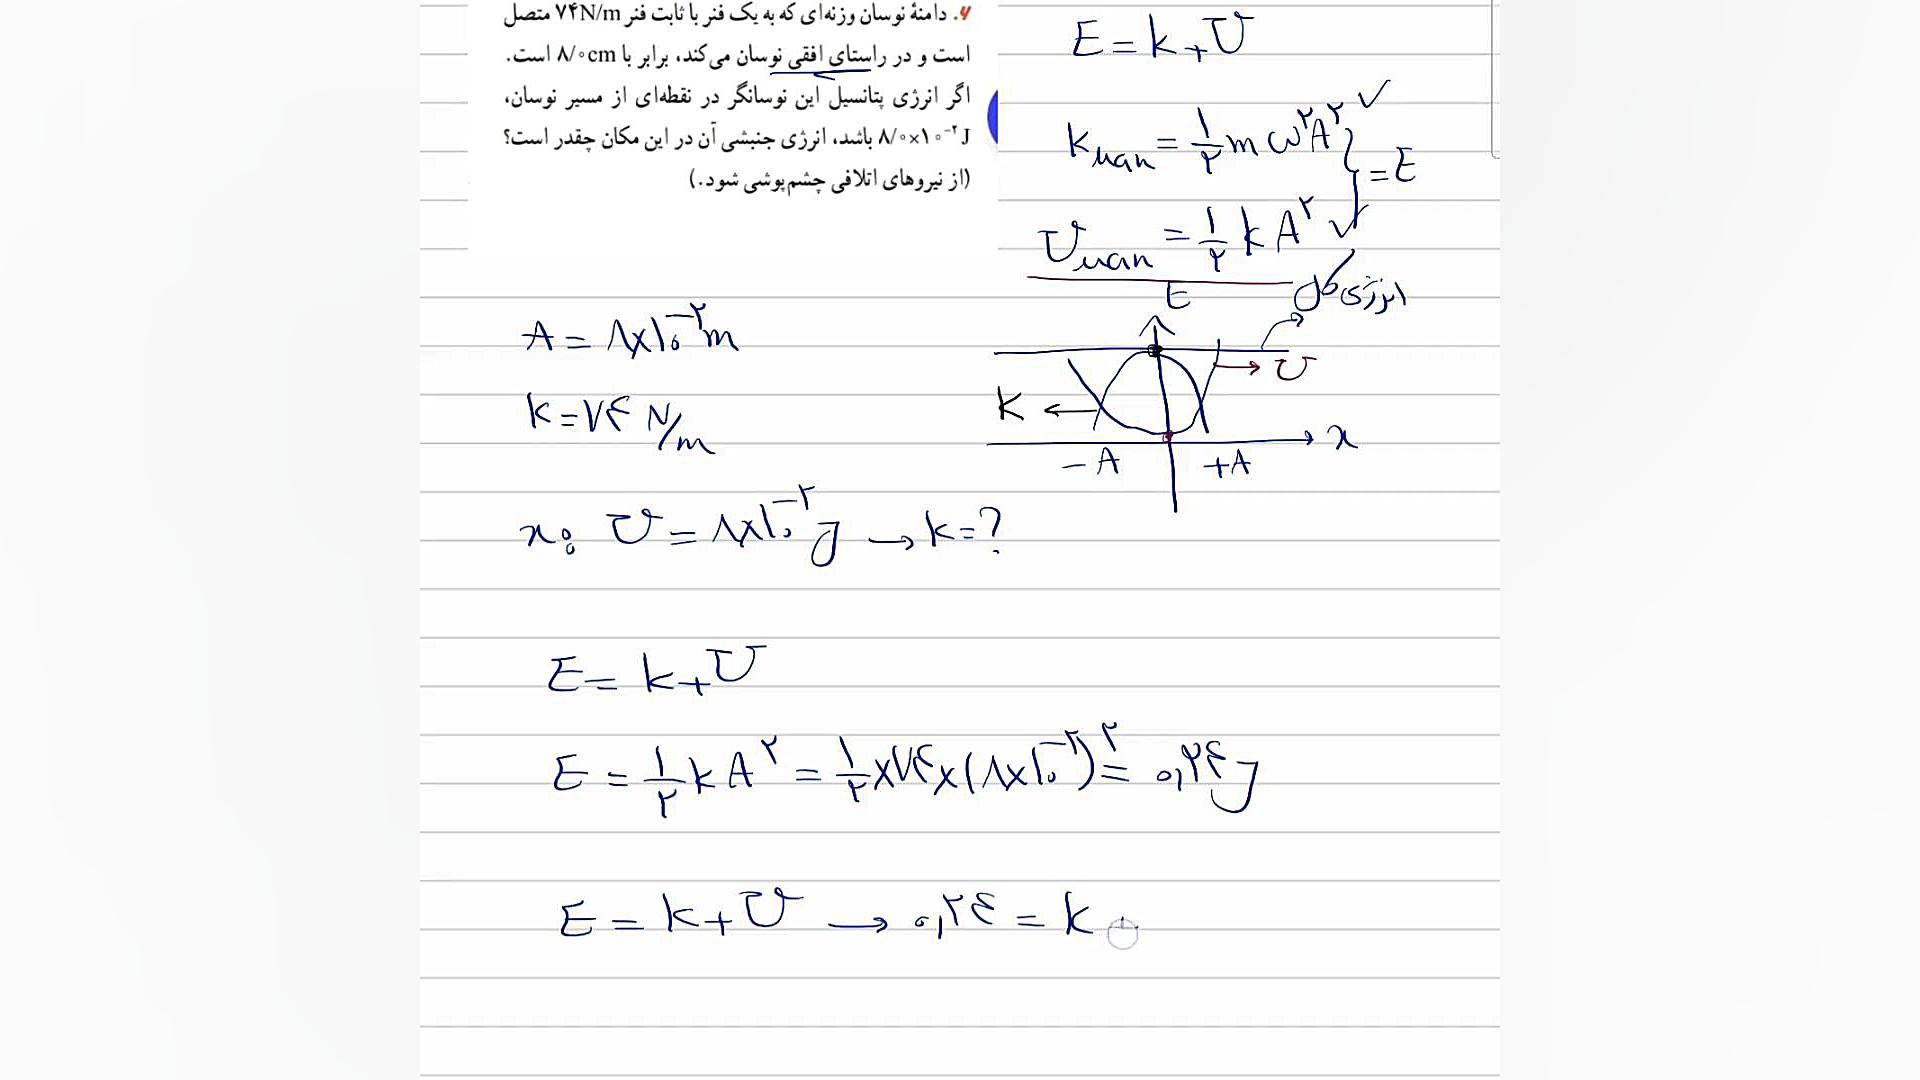 ۶. دامنهٔ نوسان وزنه‌ای که به یک فنر با ثابت فنر ۷۴N/m متصل
است و در راستای افقی نوسان می‌کند، برابر با ۸/۰cm است.
اگر انرژی پتانسیل این نوسانگر در نقطه‌ای از مسیر نوسان،
۸/۰×۱۰⁻۲ J باشد، انرژی جنبشی آن در این مکان چقدر است؟
(از نیروهای اتلافی چشم‌پوشی شود.)
E = k + U
k max = ۱/۲ m ω^۲ A^۲ ✓
= E
U max = ۱/۲ k A^۲ ✓
انرژی کل
E
U
K
x
-A +A
A = ۸×۱۰^-۲ m
k = ۷۴ N/m
x: U = ۸×۱۰^-۲ J → k = ?
E = k + U
E = ۱/۲ k A^۲ = ۱/۲ × ۷۴ × (۸×۱۰^-۲)^۲ = ۰,۲۴ J
E = k + U → ۰,۲۴ = k +